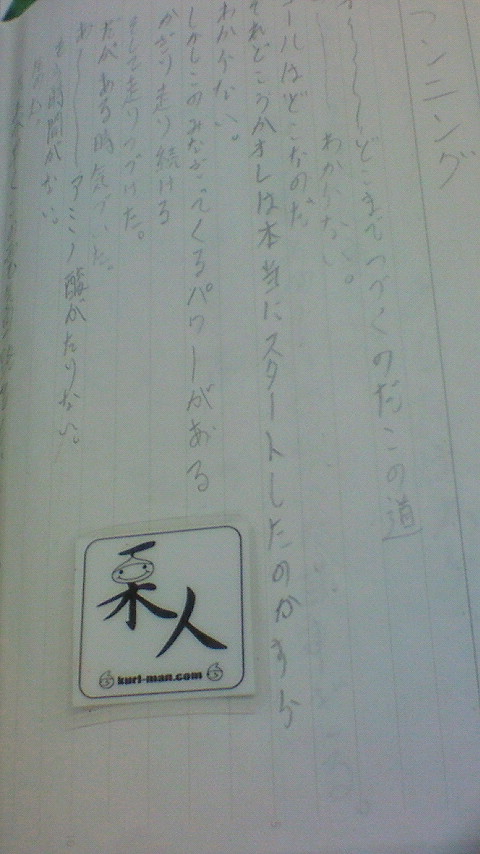 ランニング
どこまでつづくのだこの道
わからない。
ゴールはどこなのだ
それどころかオレは本当にスタートしたのかすら
わからない。
しかしこのみなぎってくるパワーがある
かぎり走り続ける
そして走りつづけた。
だがある時気づいた。
あ〜〜〜〜アミノ酸がたりない。
もう時間がない。
栗人
kuri-man.com